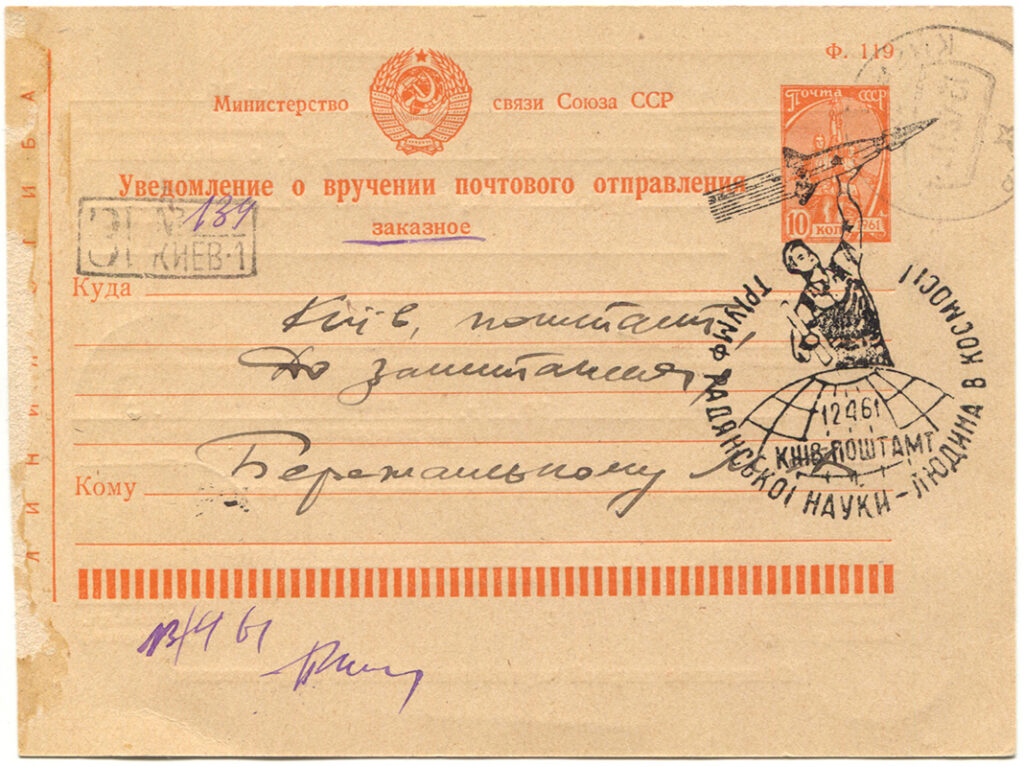 Ф. 119
Министерство связи Союза ССР
Почта СССР
Уведомление о вручении почтового отправления
№ 139
заказное
КИЕВ-1
10 коп 1961
Куда
Київ, поштамт,
До запитання,
Бережанському
Кому
ТРІУМФ РАДЯНСЬКОЇ НАУКИ - ЛЮДИНА В КОСМОСІ!
12 4 61
КИЇВ-ПОШТАМТ
ЛИНИЯ ОТГИБА
13/4 61